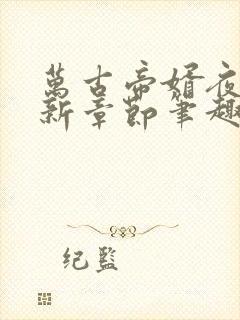 萬古帝婿夜
新章節筆趣
纪監